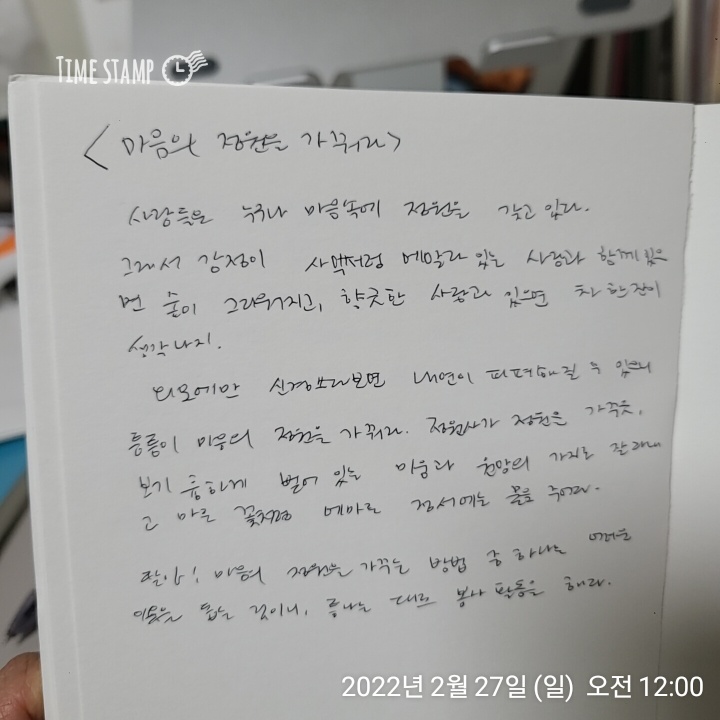 TIME STAMP
<마음의 정원을 가꿔라>
사람들은 누구나 마음속에 정원을 갖고 있다.
그래서 감정이 사막처럼 메말라 있는 사람과 함께 있으
면 술이 그리워지고, 향긋한 사람과 있으면 차 한잔이
생각나지.
외모에만 신경쓰다보면 내면이 피폐해질 수 있으니
틈틈이 마음의 정원을 가꿔라. 정원사가 정원을 가꾸듯,
보기 흉하게 뻗어 있는 미움과 원망의 가지를 잘라내
고 마른 꽃처럼 메마른 정서에는 물을 주어라.
딸아! 마음의 정원을 가꾸는 방법 중 하나는 어려운
이웃을 돕는 것이니, 틈나는 대로 봉사 활동을 해라.
2022년 2월 27일 (일) 오전 12:00